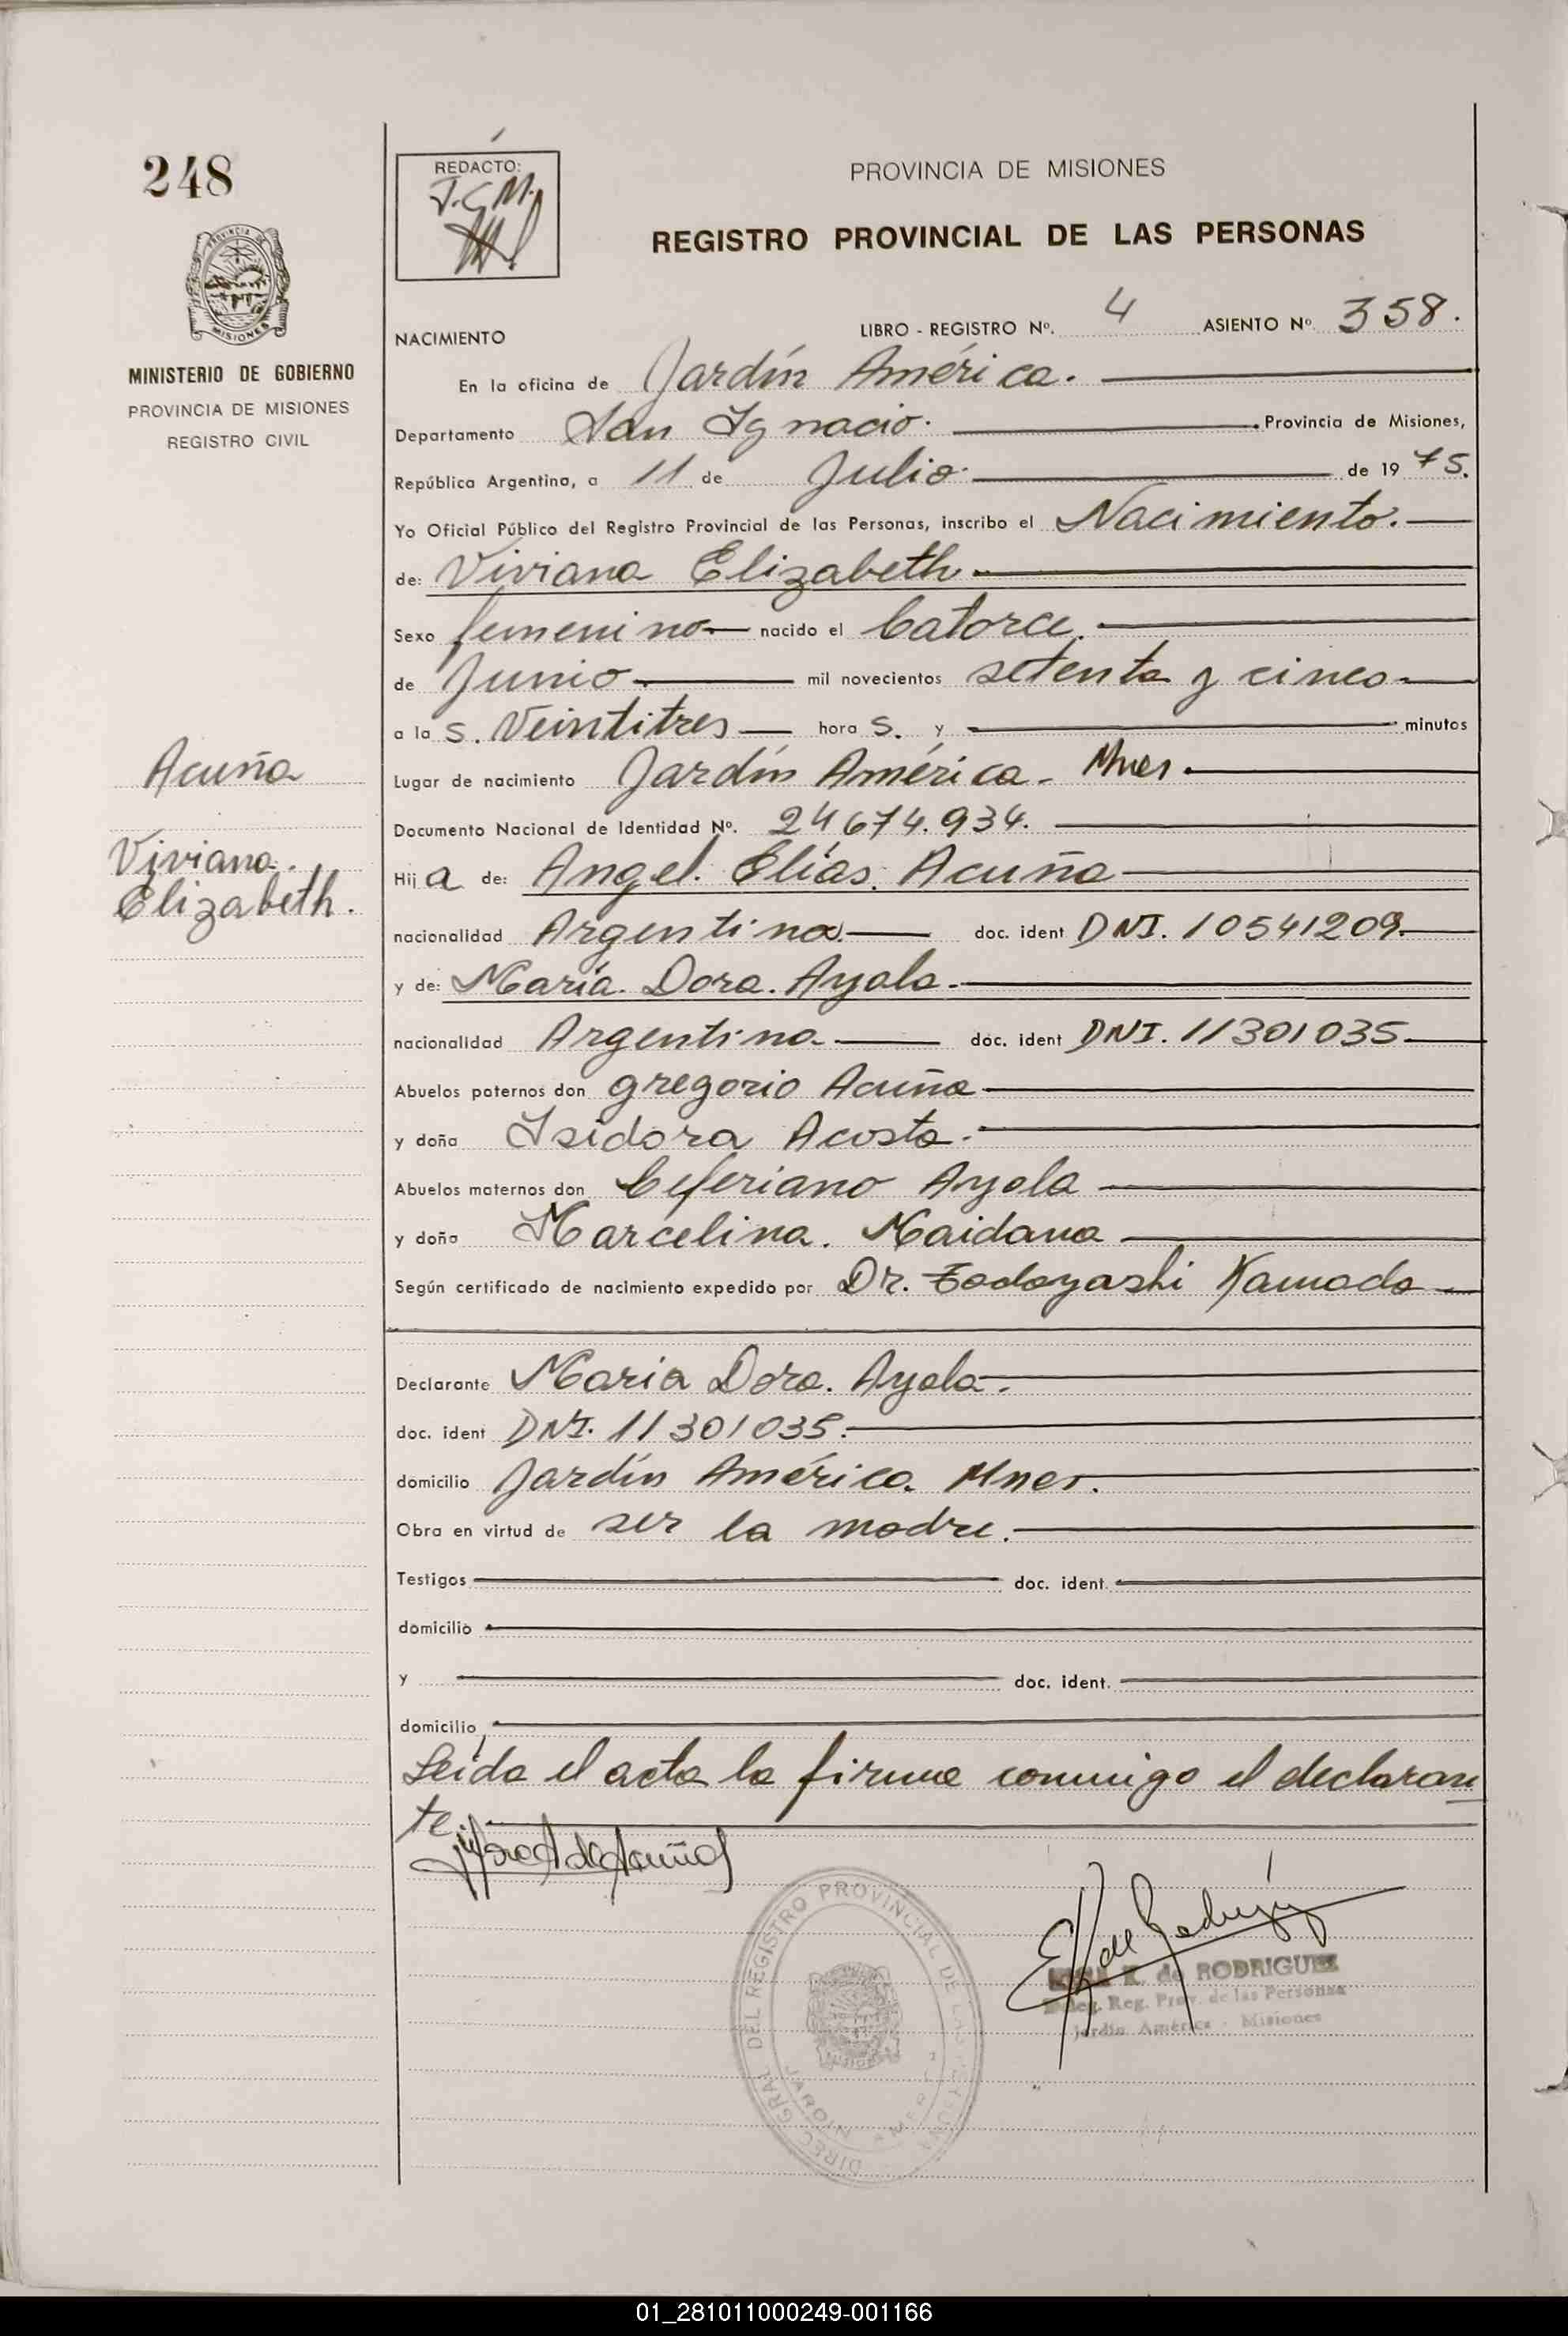 248
PROVINCIA DE
MISIONES
MINISTERIO DE GOBIERNO
PROVINCIA DE MISIONES
REGISTRO CIVIL
Acuña
Viviana.
Elizabeth.
REDACTO:
J.G.M.
PROVINCIA DE MISIONES
REGISTRO PROVINCIAL DE LAS PERSONAS
NACIMIENTO LIBRO - REGISTRO Nº. 4 ASIENTO Nº 358.
En la oficina de Jardín América.
Departamento San Ignacio. Provincia de Misiones,
República Argentina, a 11 de Julio. de 1975.
Yo Oficial Público del Registro Provincial de las Personas, inscribo el Nacimiento.
de: Viviana Elizabeth.
Sexo femenino nacido el Catorce.
de Junio mil novecientos setenta y cinco
a las. Veintitres horas. y minutos
Lugar de nacimiento Jardín América. Mnes.
Documento Nacional de Identidad Nº. 24674.934.
Hija de: Angel. Elías. Acuña
nacionalidad Argentina. doc. ident DNI. 10541209.
y de: María. Dora. Ayala.
nacionalidad Argentina. doc. ident DNI. 11301035
Abuelos paternos don Gregorio Acuña
y doña Isidora Acosta.
Abuelos maternos don Ceferiano Ayala
y doña Marcelina. Maidana
Según certificado de nacimiento expedido por Dr. Kamada
Declarante Maria Dora. Ayala.
doc. ident DNI. 11301035.
domicilio Jardín América. Mnes.
Obra en virtud de ser la madre.
Testigos doc. ident.
domicilio
y doc. ident.
domicilio
Leída el acta la firma conmigo el declaran
te.
DIREC. GRAL. DEL REGISTRO PROVINCIAL DE LAS PERSONAS
MISIONES
JARDIN AMERICA
K. de RODRIGUEZ
Deleg. Reg. Prov. de las Personas
Jardín América - Misiones
01_281011000249-001166